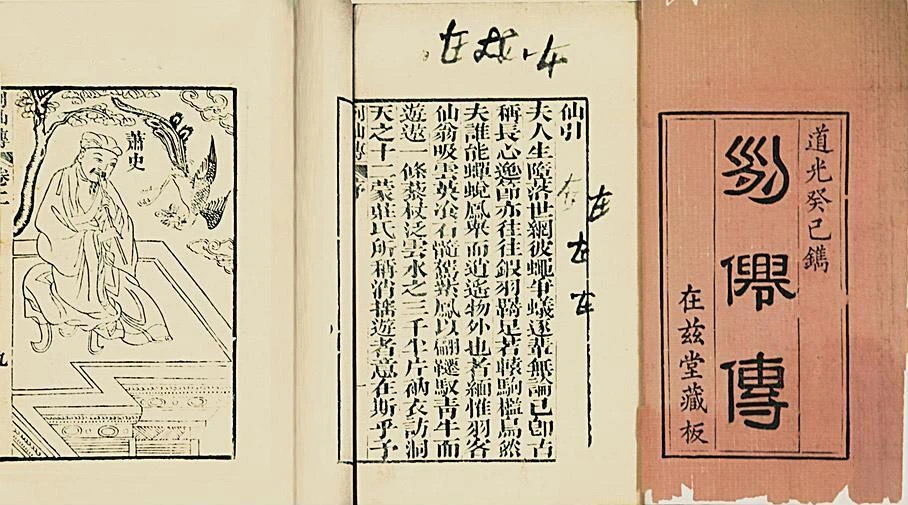 道光癸巳鐫
列僊傳
在兹堂藏板
仙引
夫人生墮落世網彼蠅爭蟻逐輩無論已卽古
稱長心逸節亦往往鎩羽羇足若轅駒檻鳥然
夫誰能蟬蛻鳳舉而逍遙物外也者緬惟羽客
仙翁吸雲英冶石髓駕紫鳳以翩躚馭青牛而
遊遨一條藜杖泛雲水之三千半片衲衣訪洞
天之十二蒙莊氏所稱消搖遊者意在斯乎予
列仙傳 序 一
在
在
在
在
蕭史
列仙傳 卷二 九